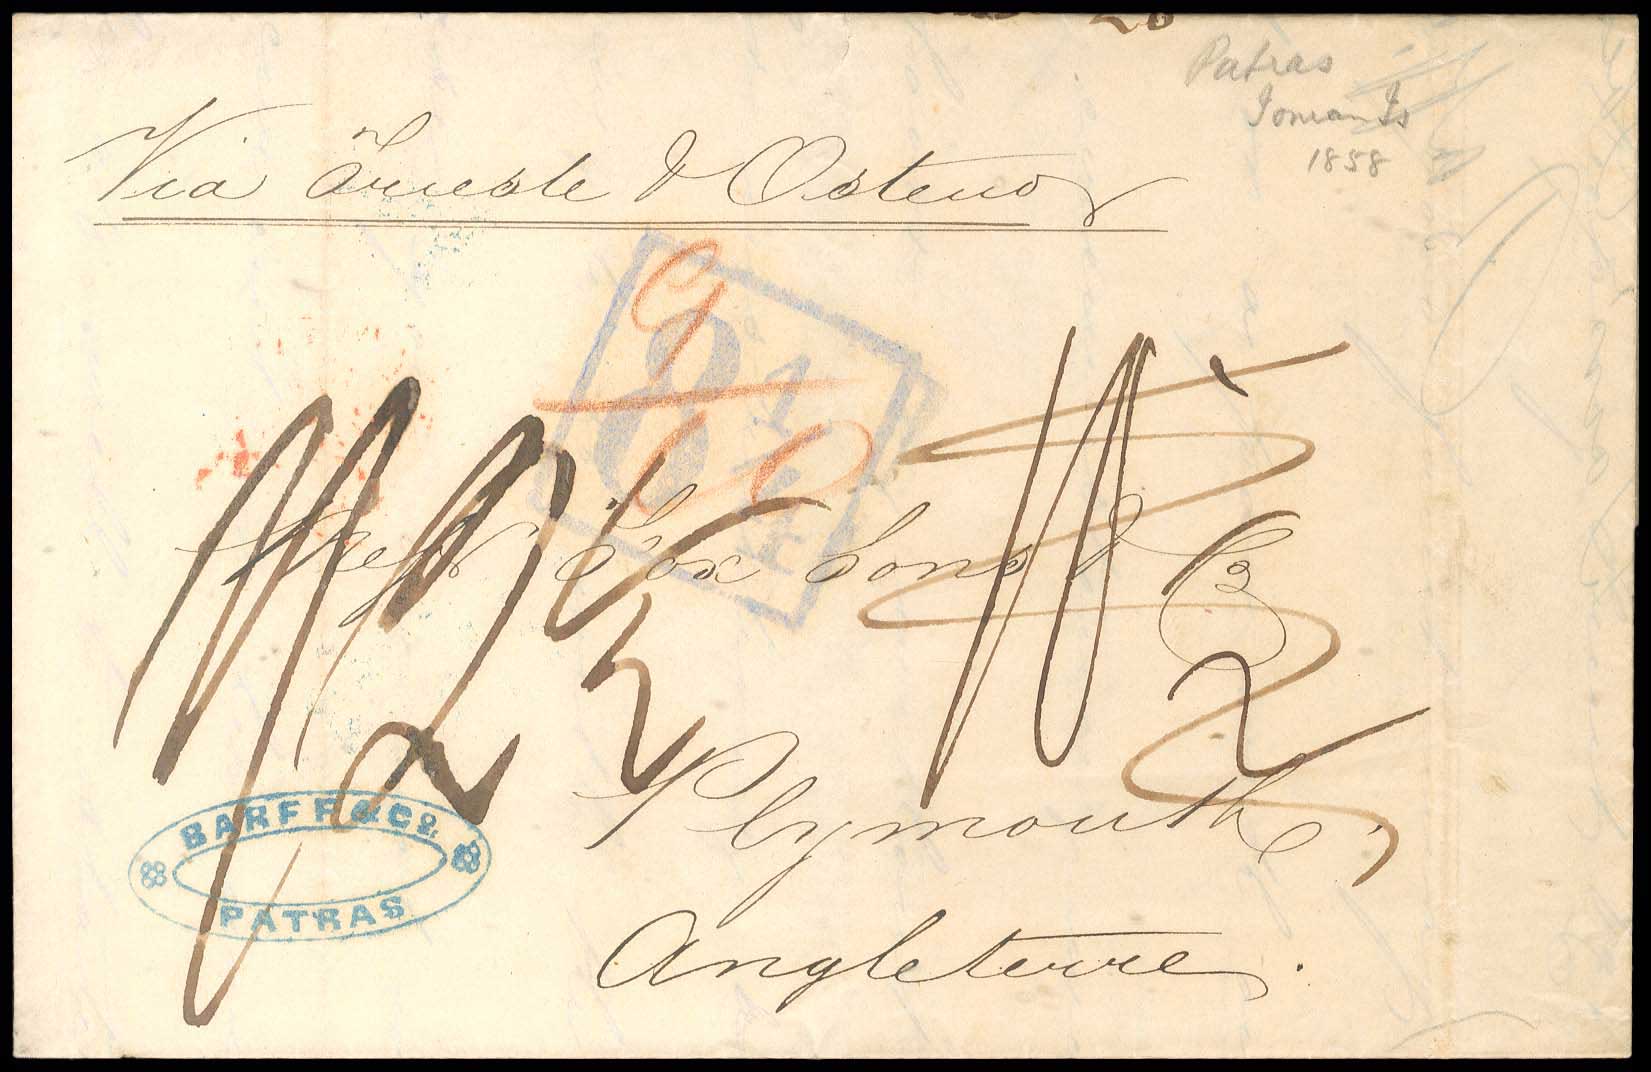 Patras
Ionian Is
1858
Via Trieste & Ostend
9
8 1/4
10
Messrs Fox Sons & Co
Plymouth
Angleterre.
BARFF & Co.
PATRAS